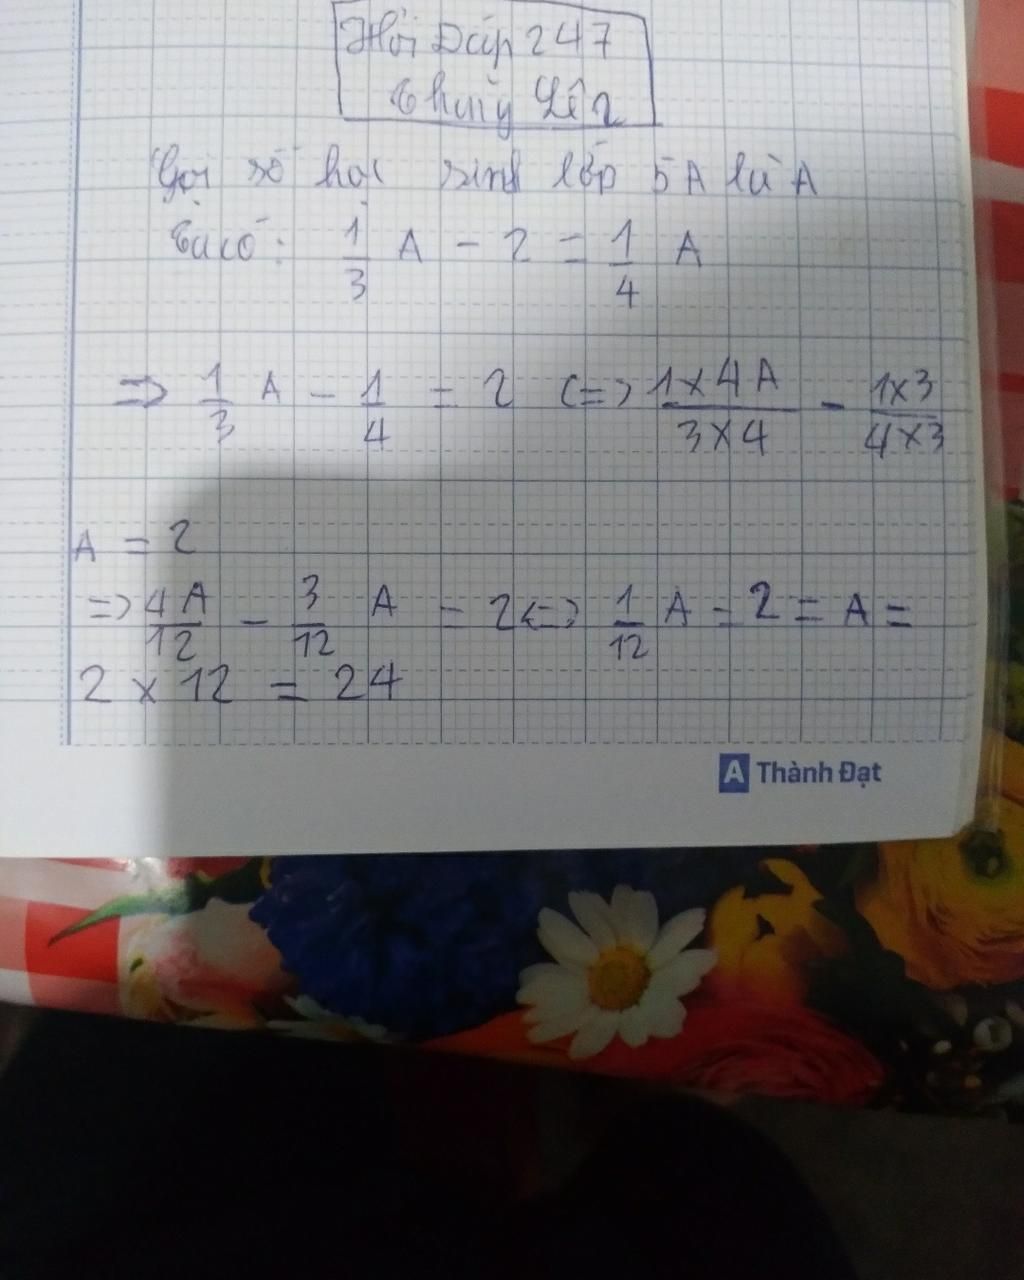 Hỏi Đáp 247
Thuỷ
Gọi số học sinh lớp 5A là A
Ta có: 1/3 A - 2 = 1/4 A
=> 1/3 A - 1/4 = 2 <=> 1x4A/3x4 - 1x3/4x3
A = 2
=> 4A/12 - 3/12 A = 2 <=> 1/12 A = 2 = A =
2 x 12 = 24
A Thành Đạt